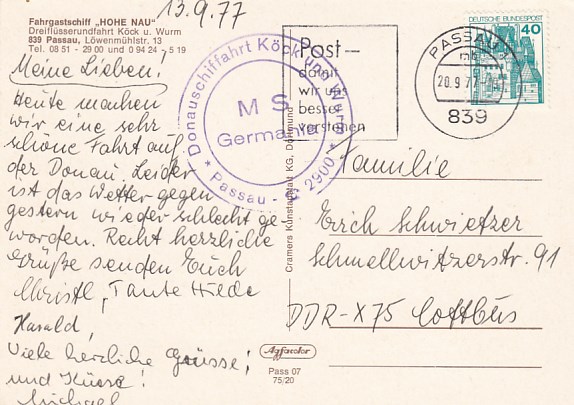 13.9.77
Fahrgastschiff „HOHE NAU"
Dreiflüsserundfahrt Köck u. Wurm
839 Passau, Löwenmühlstr. 13
Tel. 08 51 - 29 00 und 0 94 24 - 5 19
Meine Lieben!
Heute machen
wir eine sehr
schöne Fahrt auf
der Donau. Leider
ist das Wetter gegen
gestern wieder schlecht ge
worden. Recht herzliche
Grüße senden Euch
Christl, Tante Hilde
Harald,
Viele herzliche Grüsse!
und Küsse!
Michael
Donauschiffahrt Köck und Wurm
MS
Germania
* Passau - 2900 *
Post—
damit
wir uns
besser
verstehen
PASSAU
20.9.77
839
DEUTSCHE BUNDESPOST
40
Familie
Erich Schwietzer
Schmellwitzerstr. 91
DDR-X75 Cottbus
Cramers Kunstanstalt KG, Dortmund
Agfacolor
Pass 07
75/20